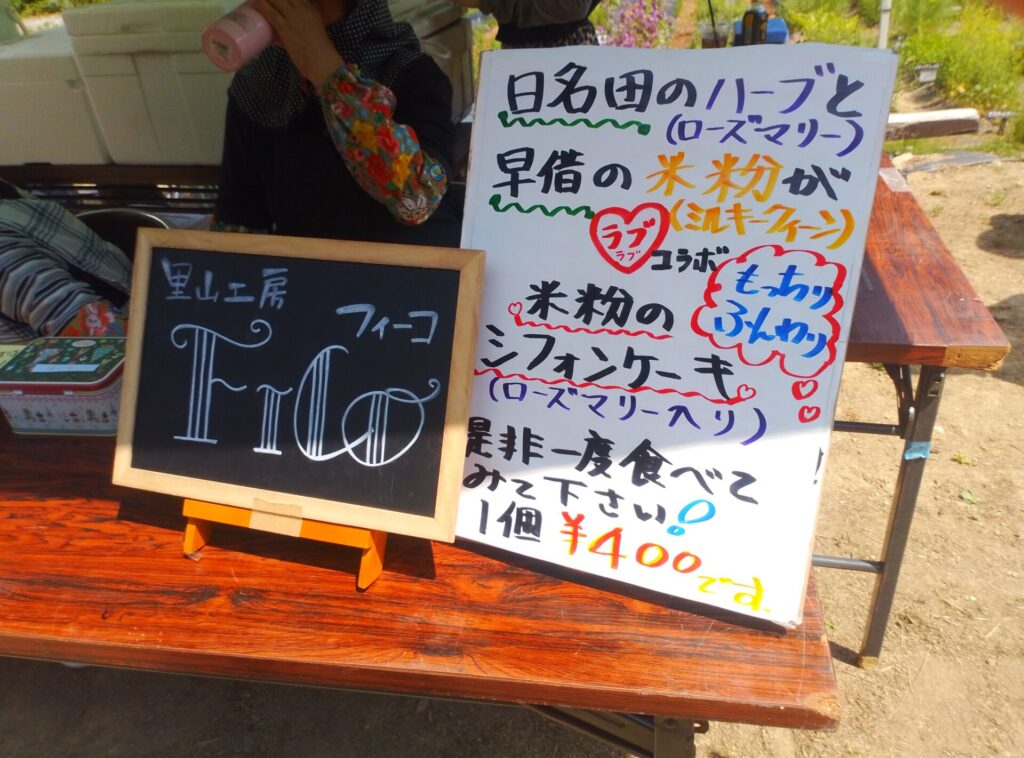 里山工房
フィーコ
FiCo
日名田のハーブと
(ローズマリー)
早借の米粉が
(ミルキークイーン)
ラブ
ラブ
コラボ
もっちり
ふんわり
米粉の
シフォンケーキ
(ローズマリー入り)
是非一度食べて
みて下さい!
1個 ¥400です.